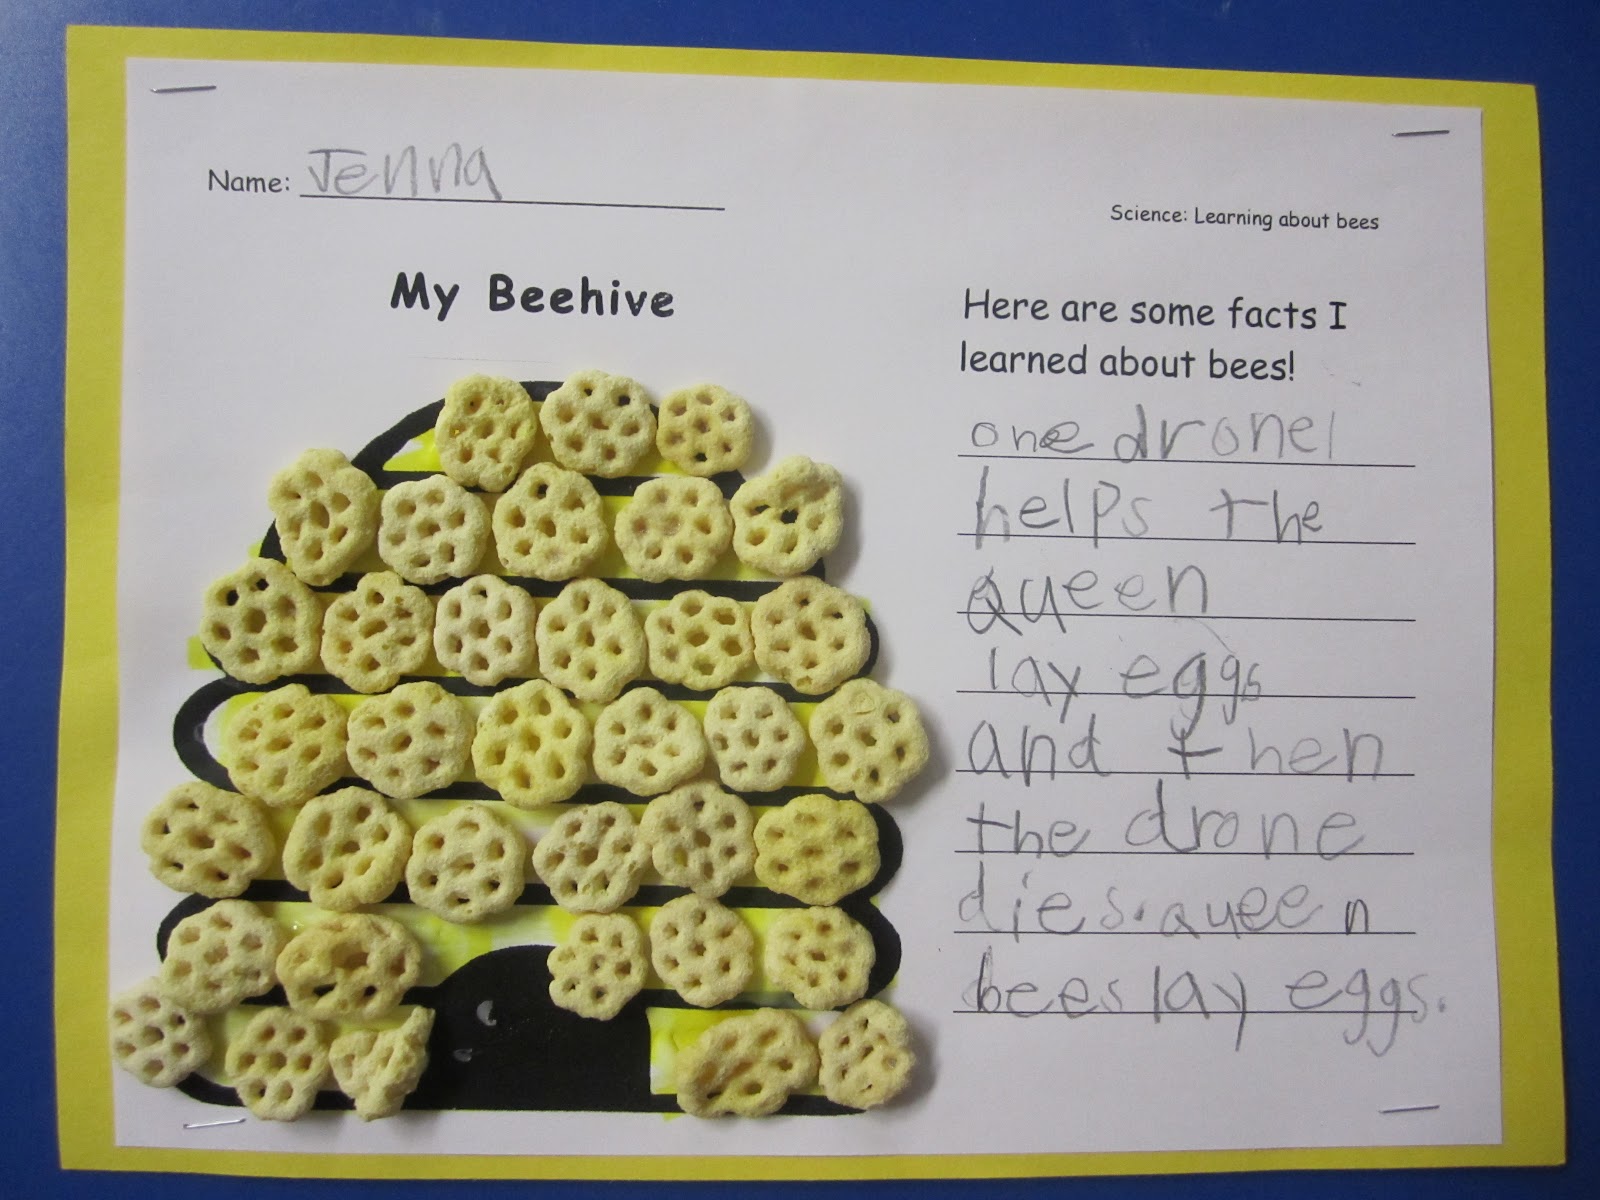 Name: Jenna
Science: Learning about bees
My Beehive
Here are some facts I
learned about bees!
one drone
helps the
queen
lay eggs
and then
the drone
dies. queen
bees lay eggs.